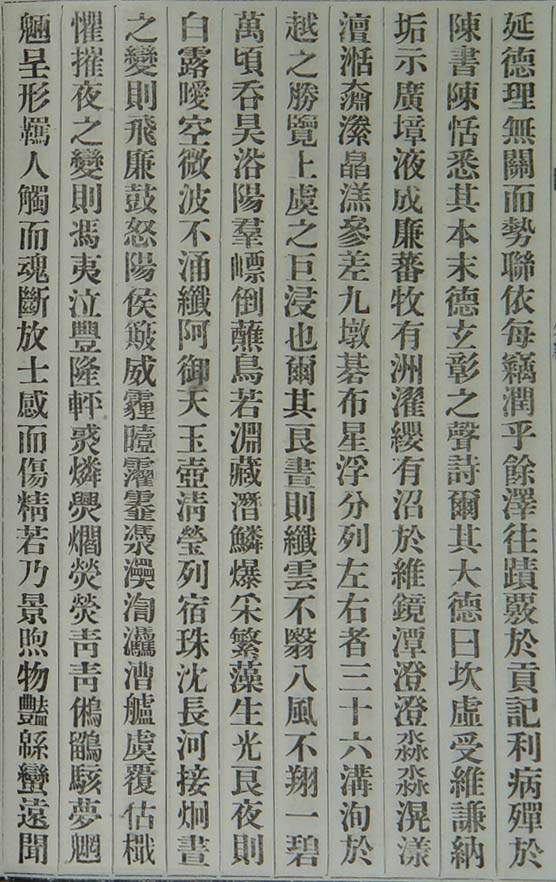 延德理無關而勢聯依每竊潤乎餘澤往蹟覈於貢記利病殫於
陳書陳恬悉其本末德玄彰之聲詩爾其大德曰坎虛受維謙納
垢示廣墇液成廉蕃牧有洲濯纓有沼於維鏡潭澄澄淼淼滉漾
澶湉奫潫皛溔參差九墩碁布星浮分列左右者三十六溝洵於
越之勝覽上虞之巨浸也爾其良晝則纖雲不翳八風不翔一碧
萬頃吞昊浴陽羣嶂倒蘸鳥若淵藏潛鱗爆采繁藻生光良夜則
白露曖空微波不涌纖阿御天玉壺淸瑩列宿珠沈長河接炯晝
之變則飛廉鼓怒陽侯簸威霾曀靃霎憑瀑洶灟漕艫虞覆估檝
懼摧夜之變則馮夷泣豐隆軯裻燐爂爓熒熒靑靑鵂鶹駭夢魍
魎呈形羈人觸而魂斷放士感而傷精若乃景煦物豔緜蠻遠聞